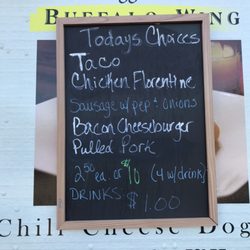 BUFFALO WING
Todays Choices
Taco
Chicken Florentine
Sausage w/pep & onions
Bacon Cheeseburger
Pulled Pork
2.50 ea. or $10 (4 w/drink)
DRINKS $1.00
Chili Cheese Dog